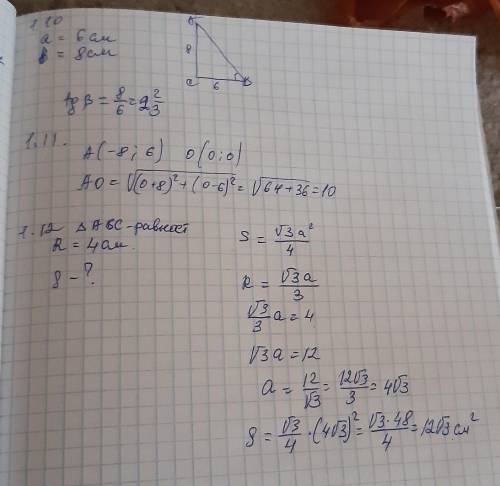 1.10
a = 6 см
b = 8 см
8
C
6
B
tg β = 8/6 = 2 2/3
1.11.
A(-8; 6) O(0; 0)
AO = √((0+8)²+(0-6)²) = √(64+36) = 10
1.12 △ABC-равност
R = 4 см.
S - ?
S = √3a²/4
R = √3a/3
√3/3 a = 4
√3a = 12
a = 12/√3 = 12√3/3 = 4√3
S = √3/4 · (4√3)² = √3·48/4 = 12√3 см²